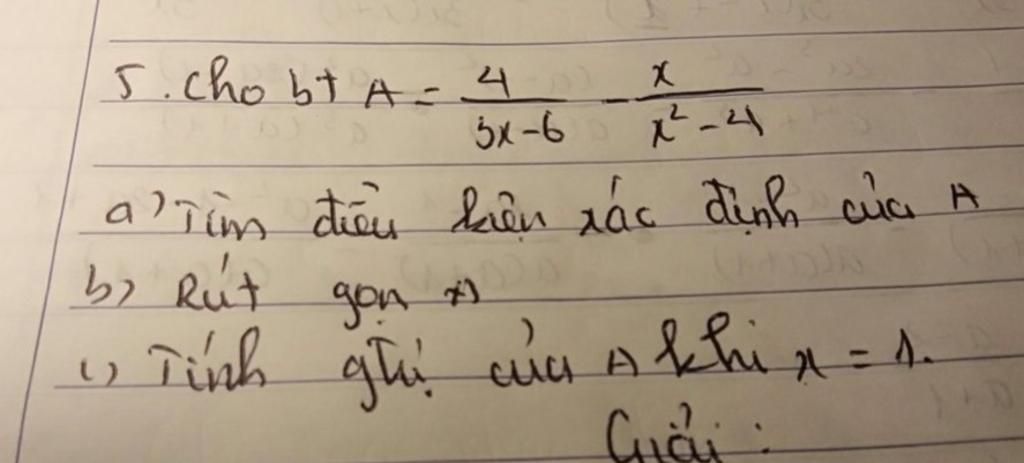 5. Cho bt A = 4/(3x-6) - x/(x²-4)
a) Tìm điều kiện xác định của A
b) Rút gọn A
c) Tính gtrị của A khi x = 1.
Giải: